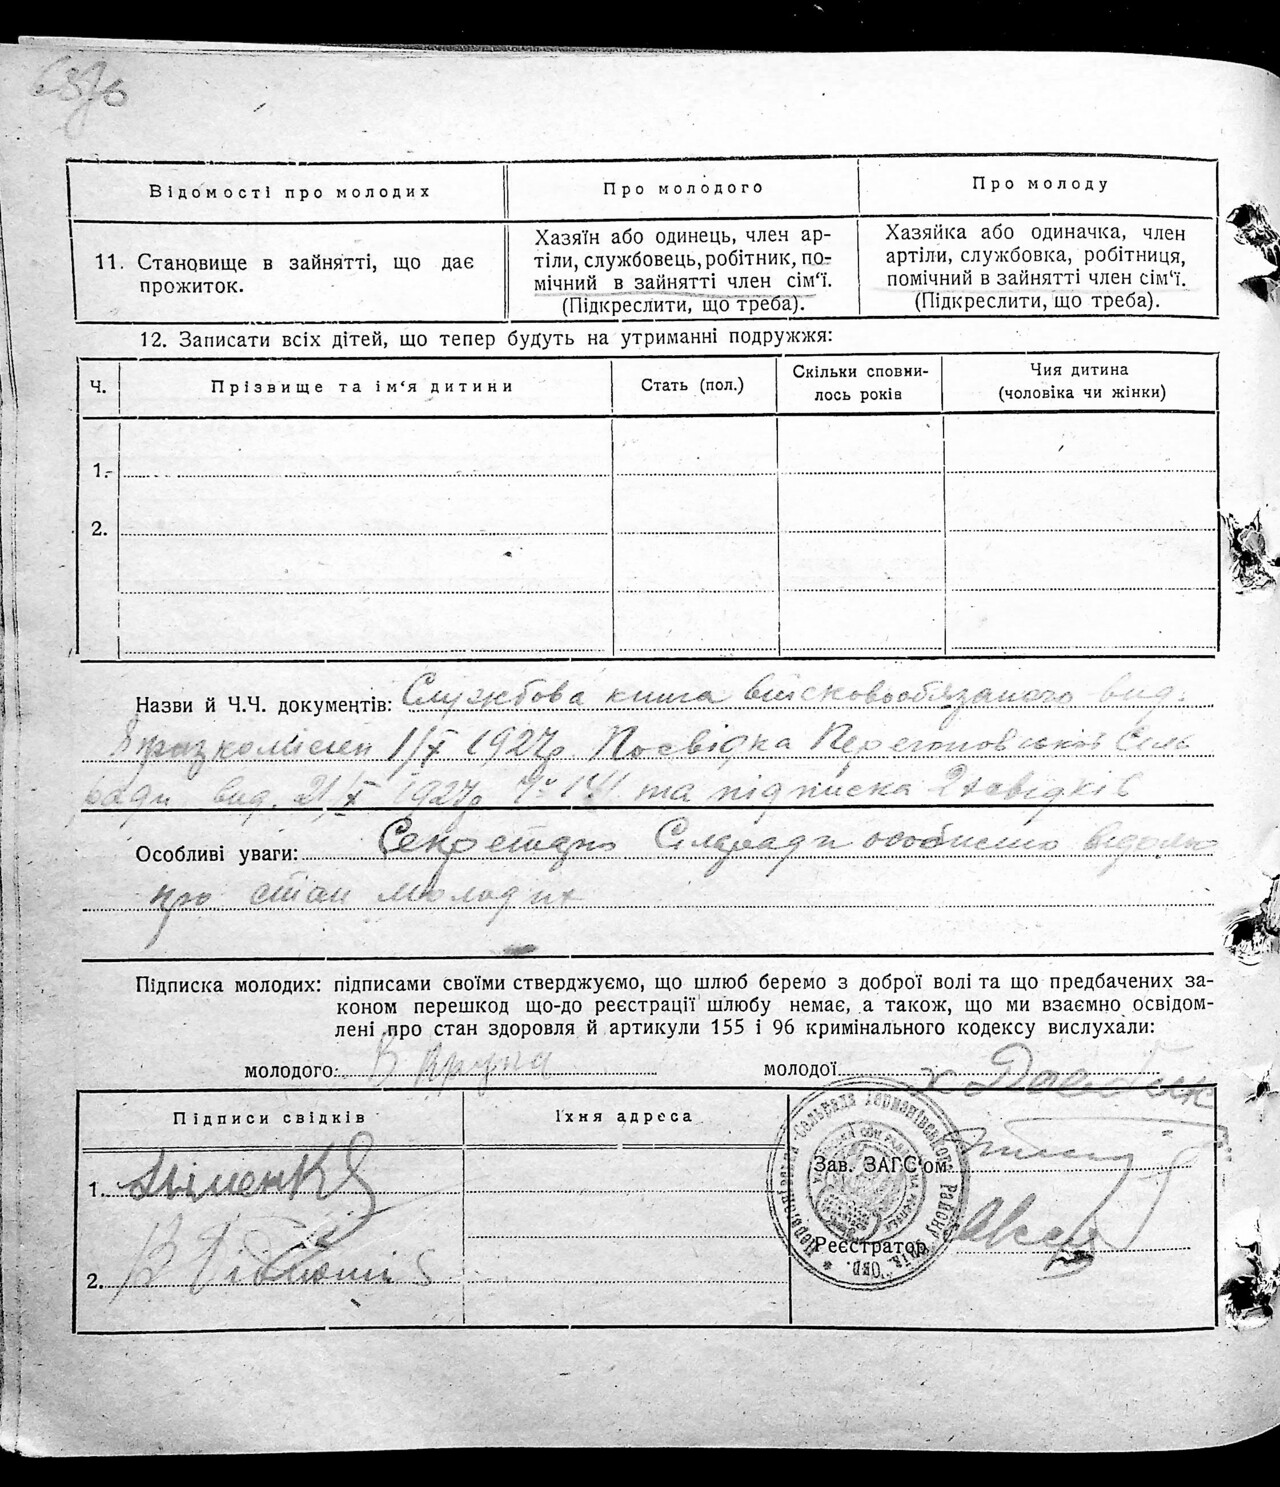 Відомості про молодих
Про молодого
Про молоду
11. Становище в зайнятті, що дає
прожиток.
Хазяїн або одинець, член ар-
тіли, службовець, робітник, по-
мічний в зайнятті член сім'ї.
(Підкреслити, що треба).
Хазяйка або одиначка, член
артіли, службовка, робітниця,
помічний в зайнятті член сім'ї.
(Підкреслити, що треба).
12. Записати всіх дітей, що тепер будуть на утриманні подружжя:
Ч.
Прізвище та ім'я дитини
Стать (пол.)
Скільки сповни-
лось років
Чия дитина
(чоловіка чи жінки)
1.
2.
Назви й Ч.Ч. документів: Службова книга військовообязаного вид.
1/X 1927р. Посвідка Перегонівської Сіль
ради вид. 21/X 1927р та підписка 2х свідків
Особливі уваги: Секретарю Сільради особисто відомо
про стан молодих
Підписка молодих: підписами своїми стверджуємо, що шлюб беремо з доброї волі та що предбачених за-
коном перешкод що-до реєстрації шлюбу немає, а також, що ми взаємно освідом-
лені про стан здоровля й артикули 155 і 96 кримінального кодексу вислухали:
молодого:
молодої
Підписи свідків
Їхня адреса
Зав. ЗАГС'ом
1.
Реєстратор
2.